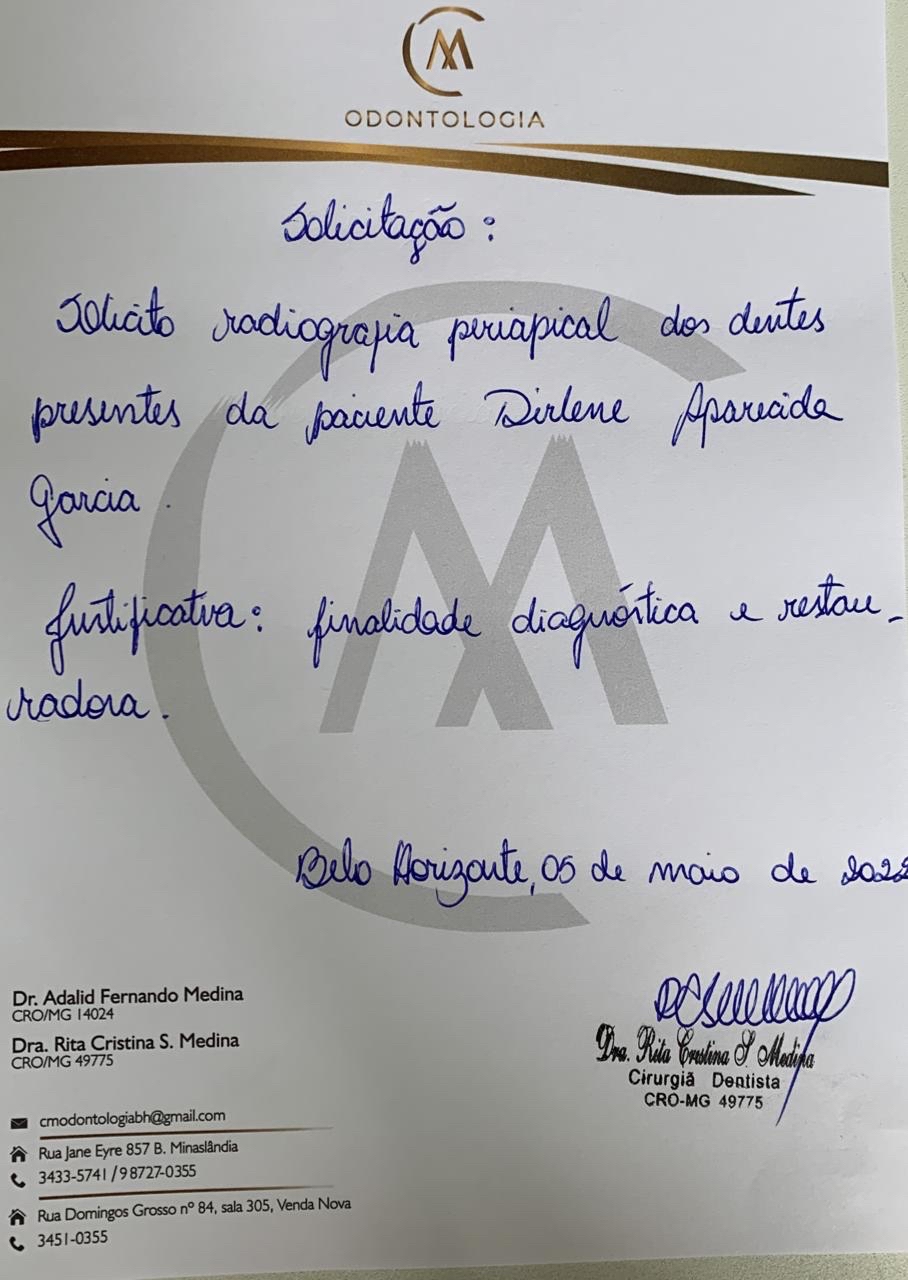 CM
ODONTOLOGIA
Solicitação:
Solicito radiografia periapical dos dentes
presentes da paciente Dirlene Aparecida
Garcia.
Justificativa: finalidade diagnóstica e restau-
radora.
Belo Horizonte, 05 de maio de 2022
Dr. Adalid Fernando Medina
CRO/MG 14024
Dra. Rita Cristina S. Medina
CRO/MG 49775
Dra. Rita Cristina S Medina
Cirurgiã Dentista
CRO-MG 49775
cmodontologiabh@gmail.com
Rua Jane Eyre 857 B. Minaslândia
3433-5741 / 98727-0355
Rua Domingos Grosso nº 84, sala 305, Venda Nova
3451-0355